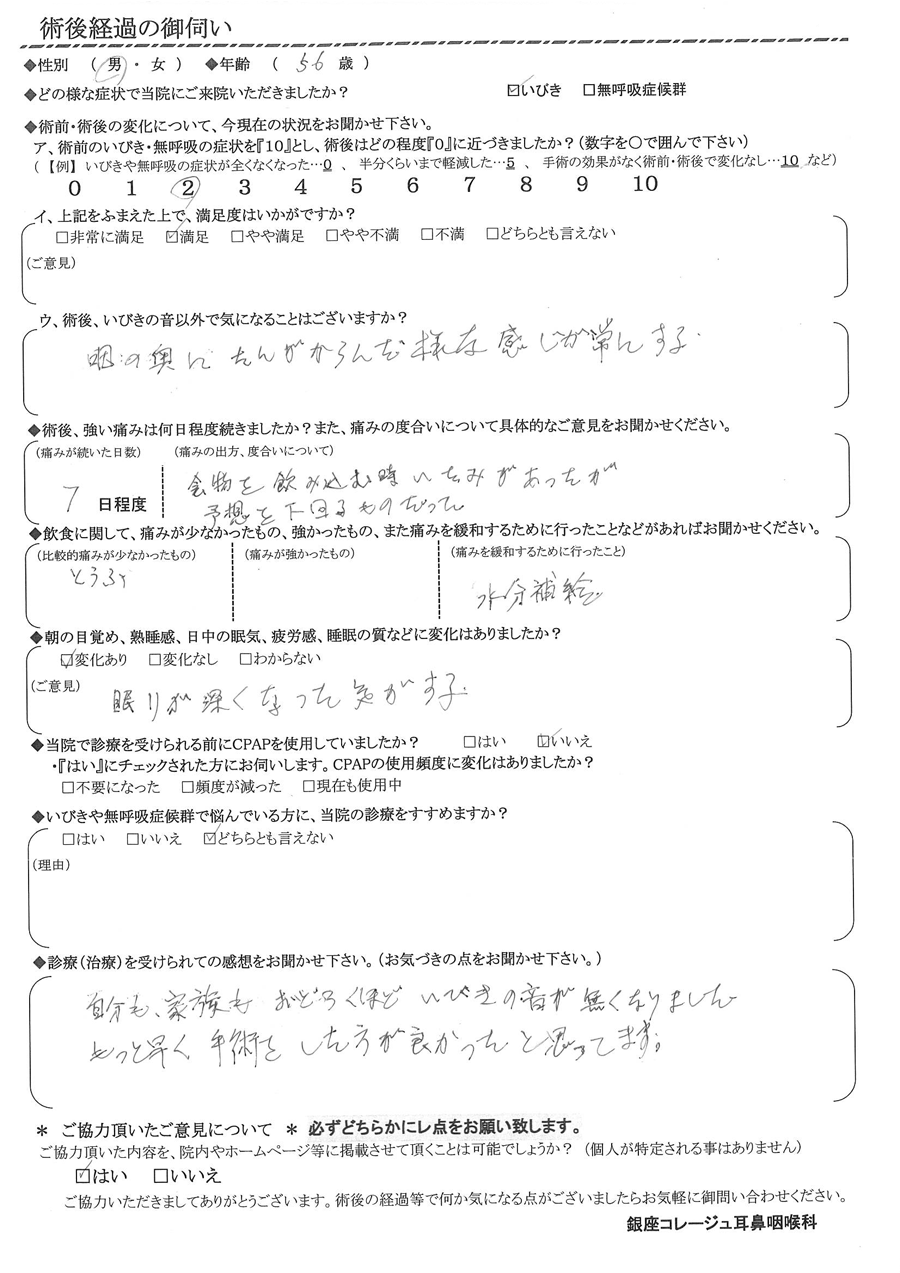 術後経過の御伺い
◆性別 ( 男 ・ 女 ) ◆年齢 ( 56 歳 )
◆どの様な症状で当院にご来院いただきましたか? ☑いびき □無呼吸症候群
◆術前・術後の変化について、今現在の状況をお聞かせ下さい。
ア、術前のいびき・無呼吸の症状を『10』とし、術後はどの程度『0』に近づきましたか?(数字を○で囲んで下さい)
(【例】いびきや無呼吸の症状が全くなくなった…0 、 半分くらいまで軽減した…5 、 手術の効果がなく術前・術後で変化なし…10 など)
0 1 2 3 4 5 6 7 8 9 10
イ、上記をふまえた上で、満足度はいかがですか?
□非常に満足 ☑満足 □やや満足 □やや不満 □不満 □どちらとも言えない
(ご意見)
ウ、術後、いびきの音以外で気になることはございますか?
咽の奥にたんがからんだ様な感じが常にする.
◆術後、強い痛みは何日程度続きましたか?また、痛みの度合いについて具体的なご意見をお聞かせください。
(痛みが続いた日数) (痛みの出方、度合いについて)
7 日程度 食物を飲み込む時いたみがあったが
予想を下回るものだった
◆飲食に関して、痛みが少なかったもの、強かったもの、また痛みを緩和するために行ったことなどがあればお聞かせください。
(比較的痛みが少なかったもの) (痛みが強かったもの) (痛みを緩和するために行ったこと)
とうふ 水分補給
◆朝の目覚め、熟睡感、日中の眠気、疲労感、睡眠の質などに変化はありましたか?
☑変化あり □変化なし □わからない
(ご意見) 眠りが深くなった気がする.
◆当院で診療を受けられる前にCPAPを使用していましたか? □はい ☑いいえ
・『はい』にチェックされた方にお伺いします。CPAPの使用頻度に変化はありましたか?
□不要になった □頻度が減った □現在も使用中
◆いびきや無呼吸症候群で悩んでいる方に、当院の診療をすすめますか?
□はい □いいえ ☑どちらとも言えない
(理由)
◆診療(治療)を受けられての感想をお聞かせ下さい。(お気づきの点をお聞かせ下さい。)
自分も、家族もおどろくほどいびきの音が無くなりました
もっと早く手術をした方が良かったと思ってます。
＊ ご協力頂いたご意見について ＊ 必ずどちらかにレ点をお願い致します。
ご協力頂いた内容を、院内やホームページ等に掲載させて頂くことは可能でしょうか? (個人が特定される事はありません)
☑はい □いいえ
ご協力いただきましてありがとうございます。術後の経過等で何か気になる点がございましたらお気軽に御問い合わせください。
銀座コレージュ耳鼻咽喉科